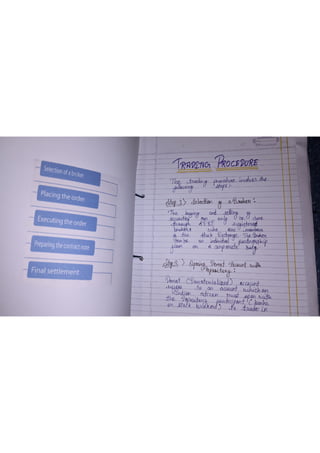 Selection of a broker
Placing the order
Executing the order
Preparing the contract note
Final settlement
TRADING PROCEDURE
The trading procedure involves the
following steps:
Step 1) Selection of a Broker:
The buying and selling of
securities can only be done
through SEBI registered
brokers who are members
of the Stock Exchange. The broker
can be an individual, partnership
firm or a corporate body
Step 2) Opening Demat Account with
Depository:
Demat (Dematerialized) account
refer to an account which an
Indian citizen must open with
the depository participant (banks
or stock brokers) to trade in